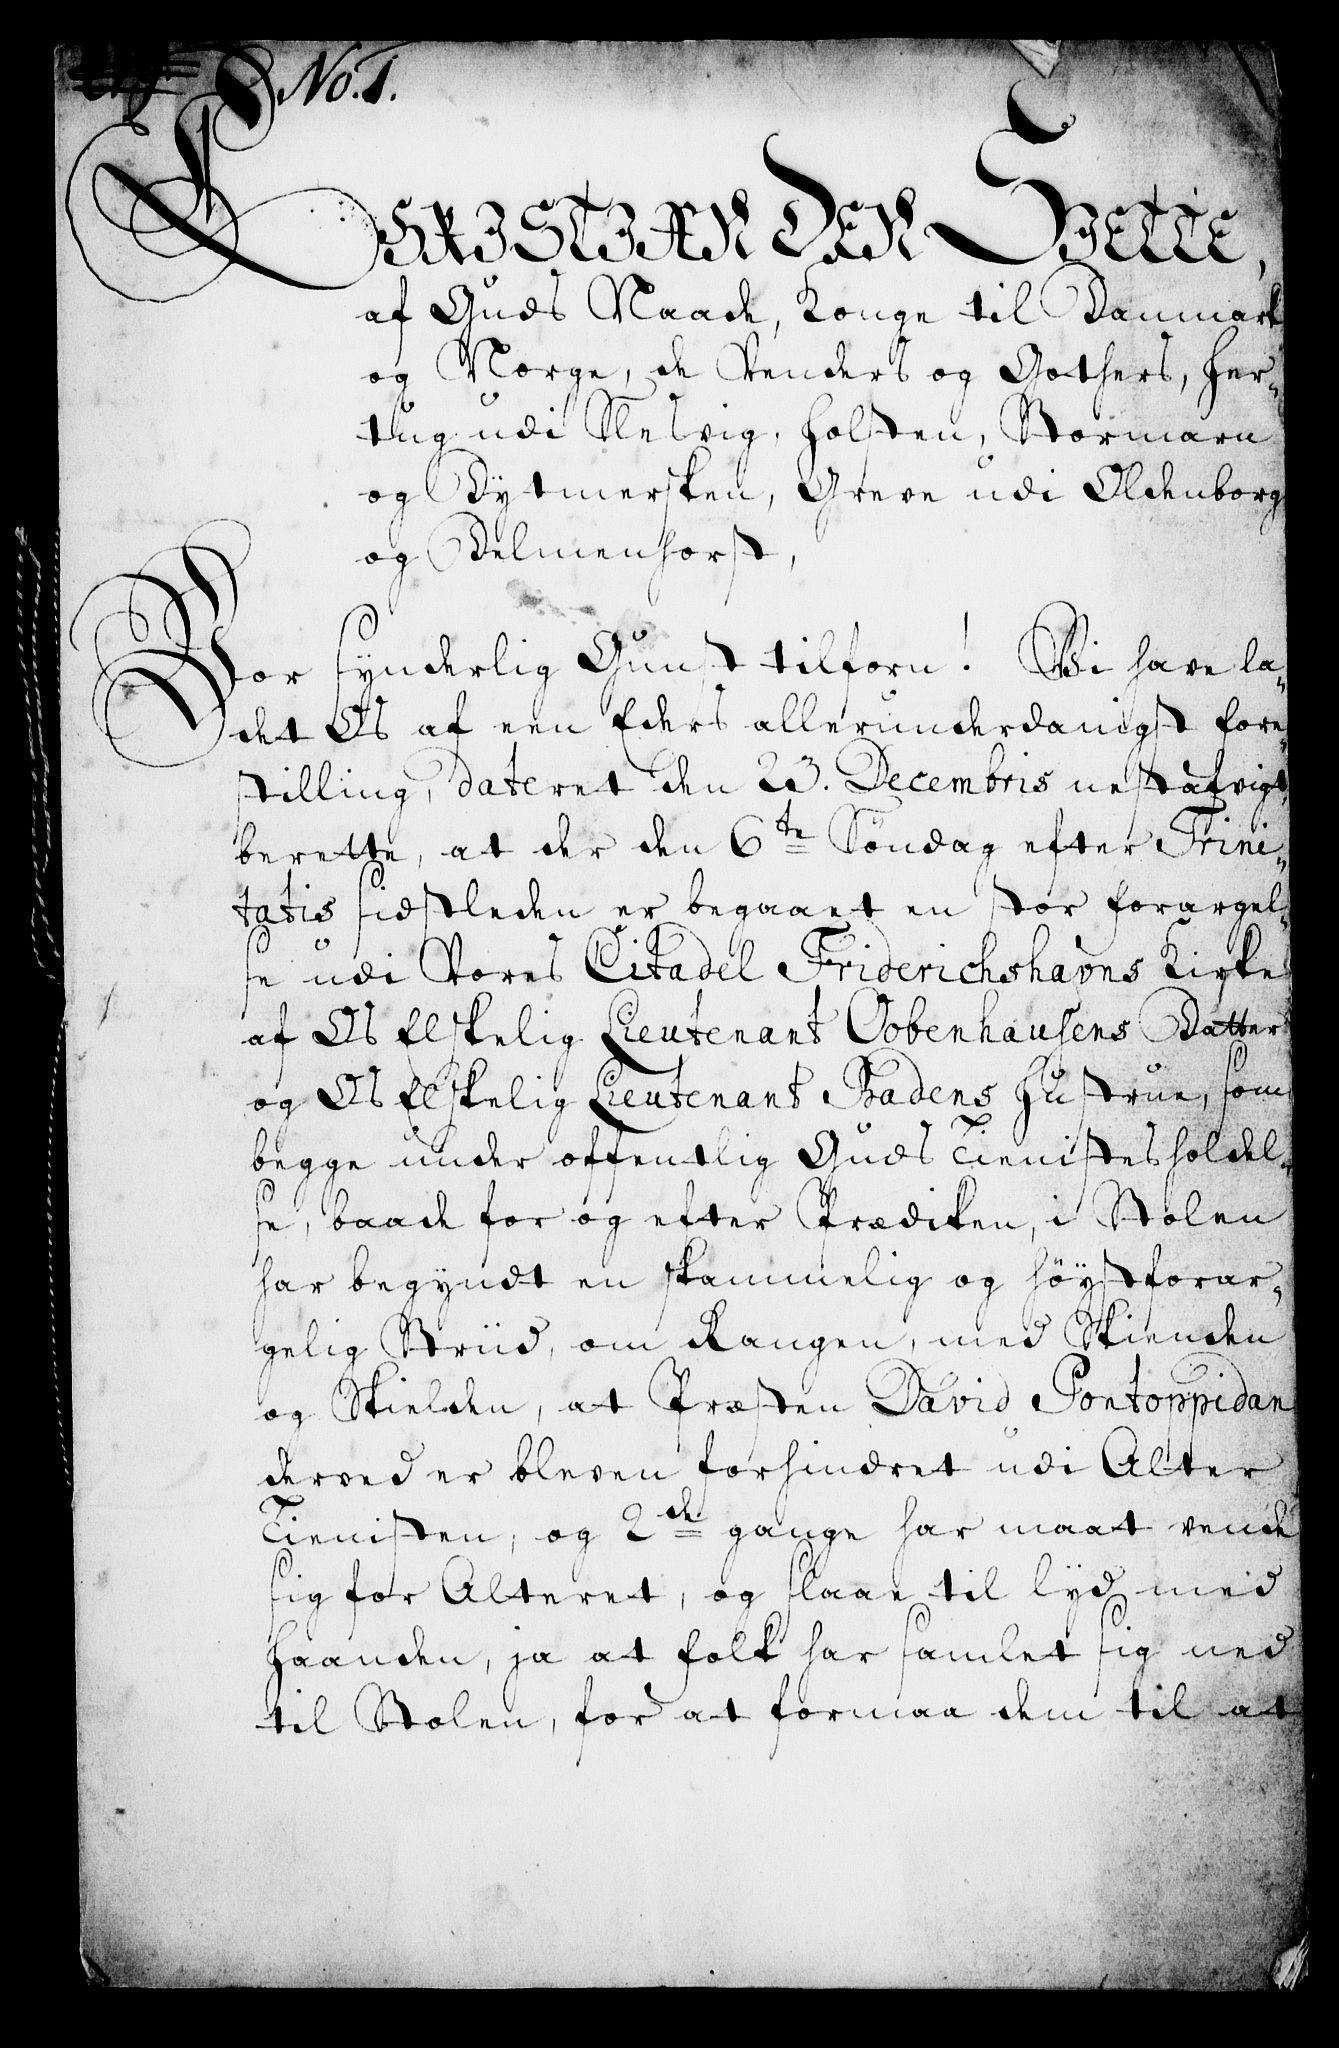 No. 1.
CHRISTIAN DEN SIETTE,
af Guds Naade, Konge til Danmark
og Norge, de Venders og Gothers, Her-
tug udi Slesvig, Holsten, Stormarn
og Dytmersken, Greve udi Oldenborg
og Delmenhorst,
Vor synderlig Gunst tilforn! Vi have la-
det Os af een Eders allerunderdanigst fore-
stilling, dateret den 23. Decembris nestafvigt
berette, at der den 6te Søndag efter Trini-
tatis sidstleden er begaaet en stor forargel-
se udi Vores Citadel Friderichshavns Kirke
af Os Elskelig Lieutenant Oobenhausens Datter
og Os Elskelig Lieutenant Badens Hustrue, som
begge under offentlig Guds Tienistes holdel-
se, baade for og efter Prædiken, i Stolen
har begyndt en skammelig og höystforar-
gelig Striid, om Rangen, med Skienden
og Skielden, at Præsten David Pontoppidan
derved er bleven forhindret udi Alter
Tienisten, og 2de gange har maat vende
sig for Alteret, og slaae til lyd med
Haanden, ja at folk har samlet sig ned
til Stolen, for at formaa dem til at